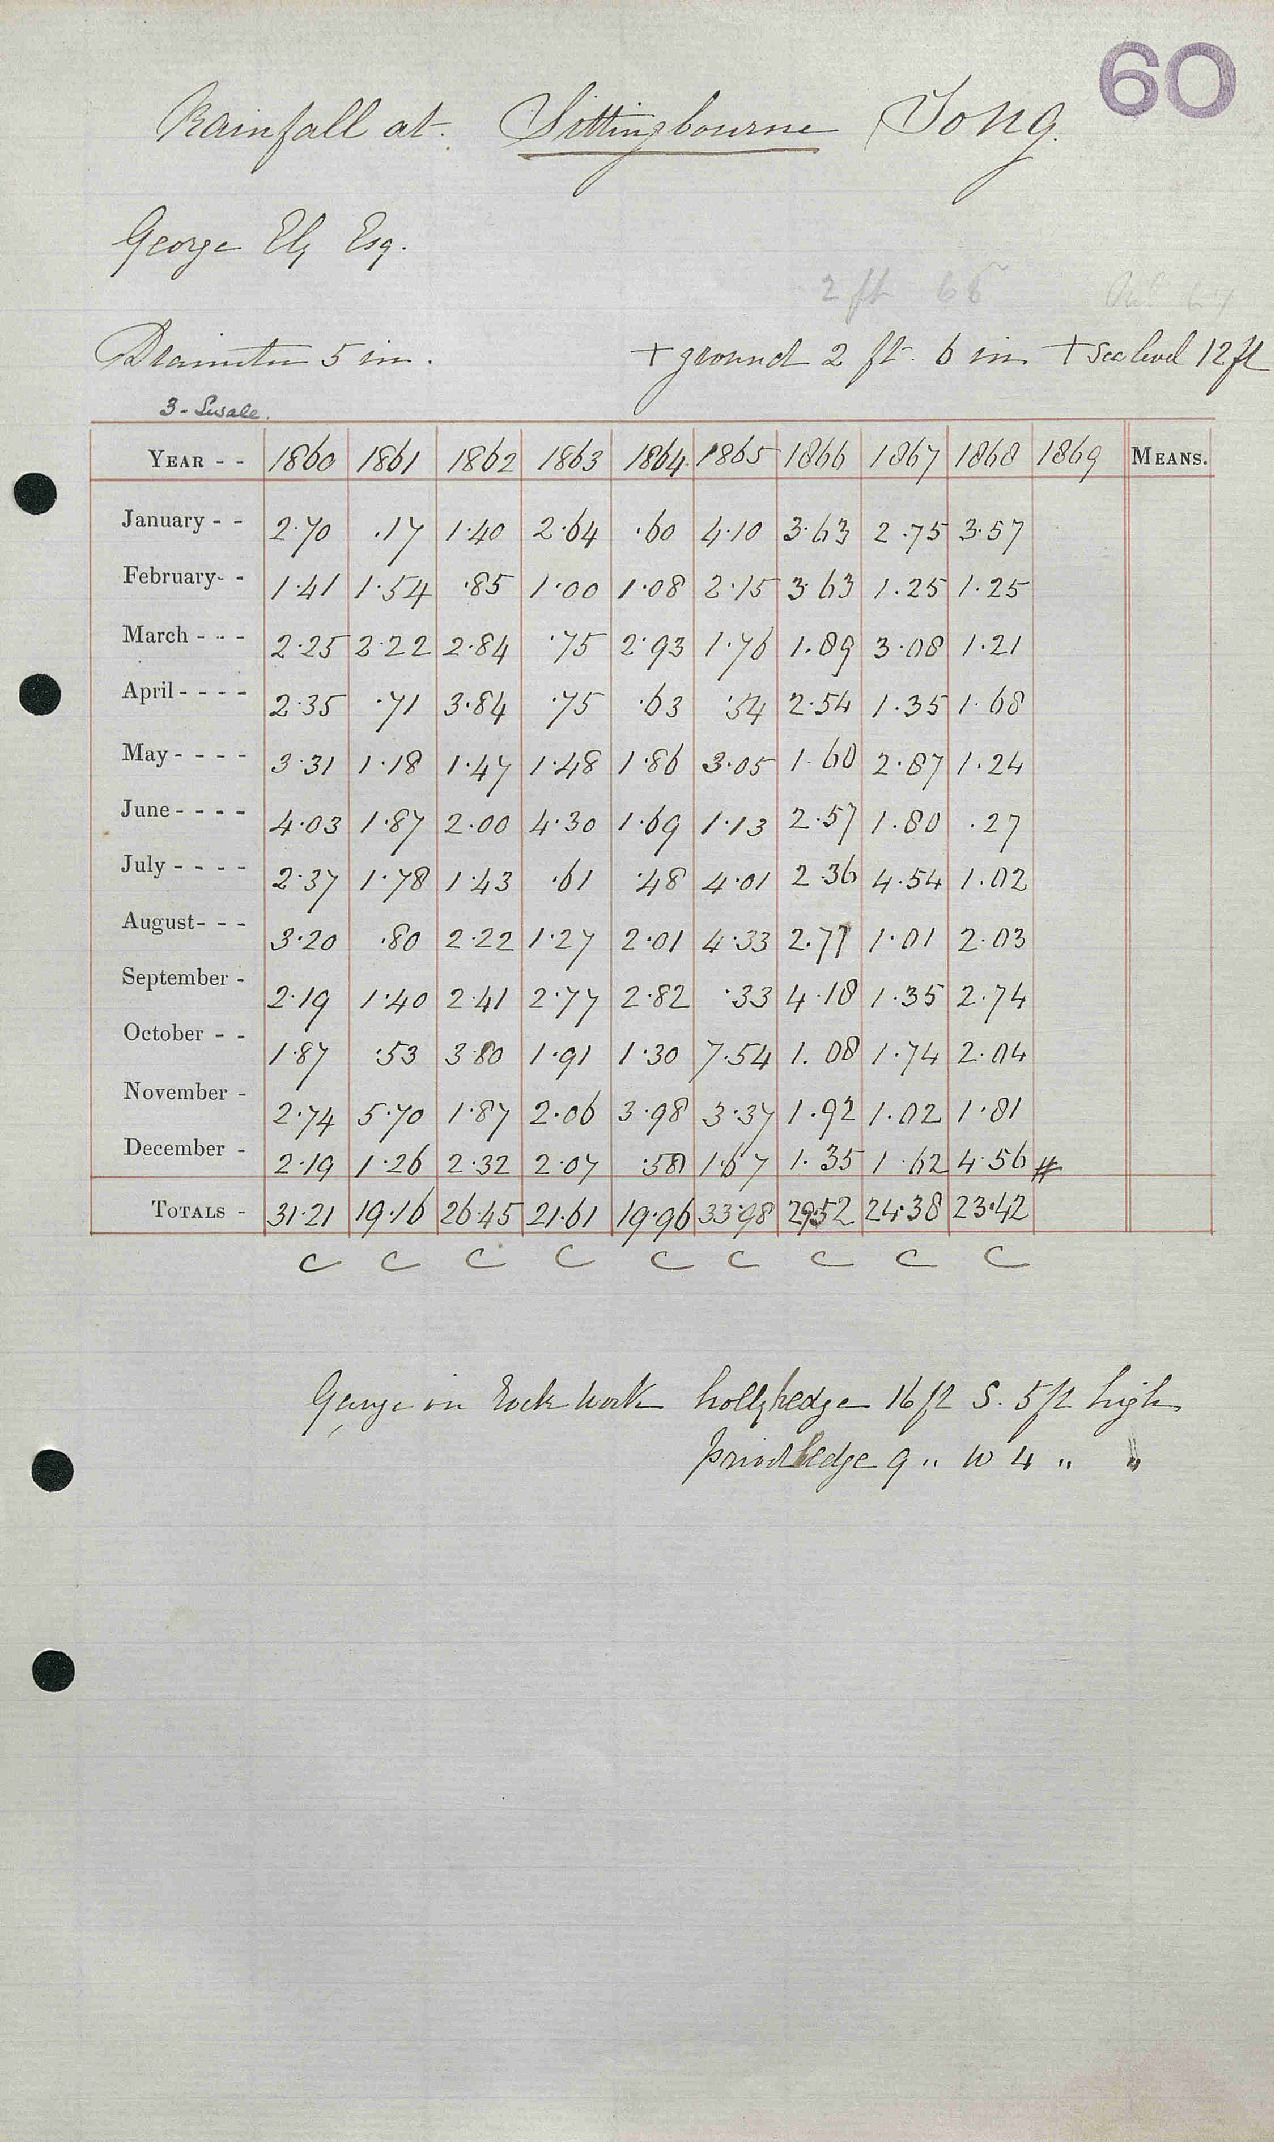 60
Rainfall at Sittingbourne Tong.
George Ely Esq.
2 ft 66
Diameter 5 in. + ground 2 ft. 6 in + Sea level 12 ft
3 - Swale.
YEAR - - 1860 1861 1862 1863 1864 1865 1866 1867 1868 1869 MEANS.
January - - 2.70 .17 1.40 2.64 .60 4.10 3.63 2.75 3.57
February- - 1.41 1.54 .85 1.00 1.08 2.15 3.63 1.25 1.25
March - - - 2.25 2.22 2.84 .75 2.93 1.76 1.89 3.08 1.21
April - - - - 2.35 .71 3.84 .75 .63 .54 2.54 1.35 1.68
May - - - - 3.31 1.18 1.47 1.48 1.86 3.05 1.60 2.87 1.24
June - - - - 4.03 1.87 2.00 4.30 1.69 1.13 2.57 1.80 .27
July - - - - 2.37 1.78 1.43 .61 .48 4.01 2.36 4.54 1.02
August- - - 3.20 .80 2.22 1.27 2.01 4.33 2.77 1.01 2.03
September - 2.19 1.40 2.41 2.77 2.82 .33 4.18 1.35 2.74
October - - 1.87 .53 3.80 1.91 1.30 7.54 1.08 1.74 2.04
November - 2.74 5.70 1.87 2.06 3.98 3.37 1.92 1.02 1.81
December - 2.19 1.26 2.32 2.07 .58 1.67 1.35 1.62 4.56 #
TOTALS - 31.21 19.16 26.45 21.61 19.96 33.98 29.52 24.38 23.42
C C C C C C C C C
Gauge in Rock work hollyhedge 16 ft S. 5 ft high
privet hedge 9 " W 4 " "